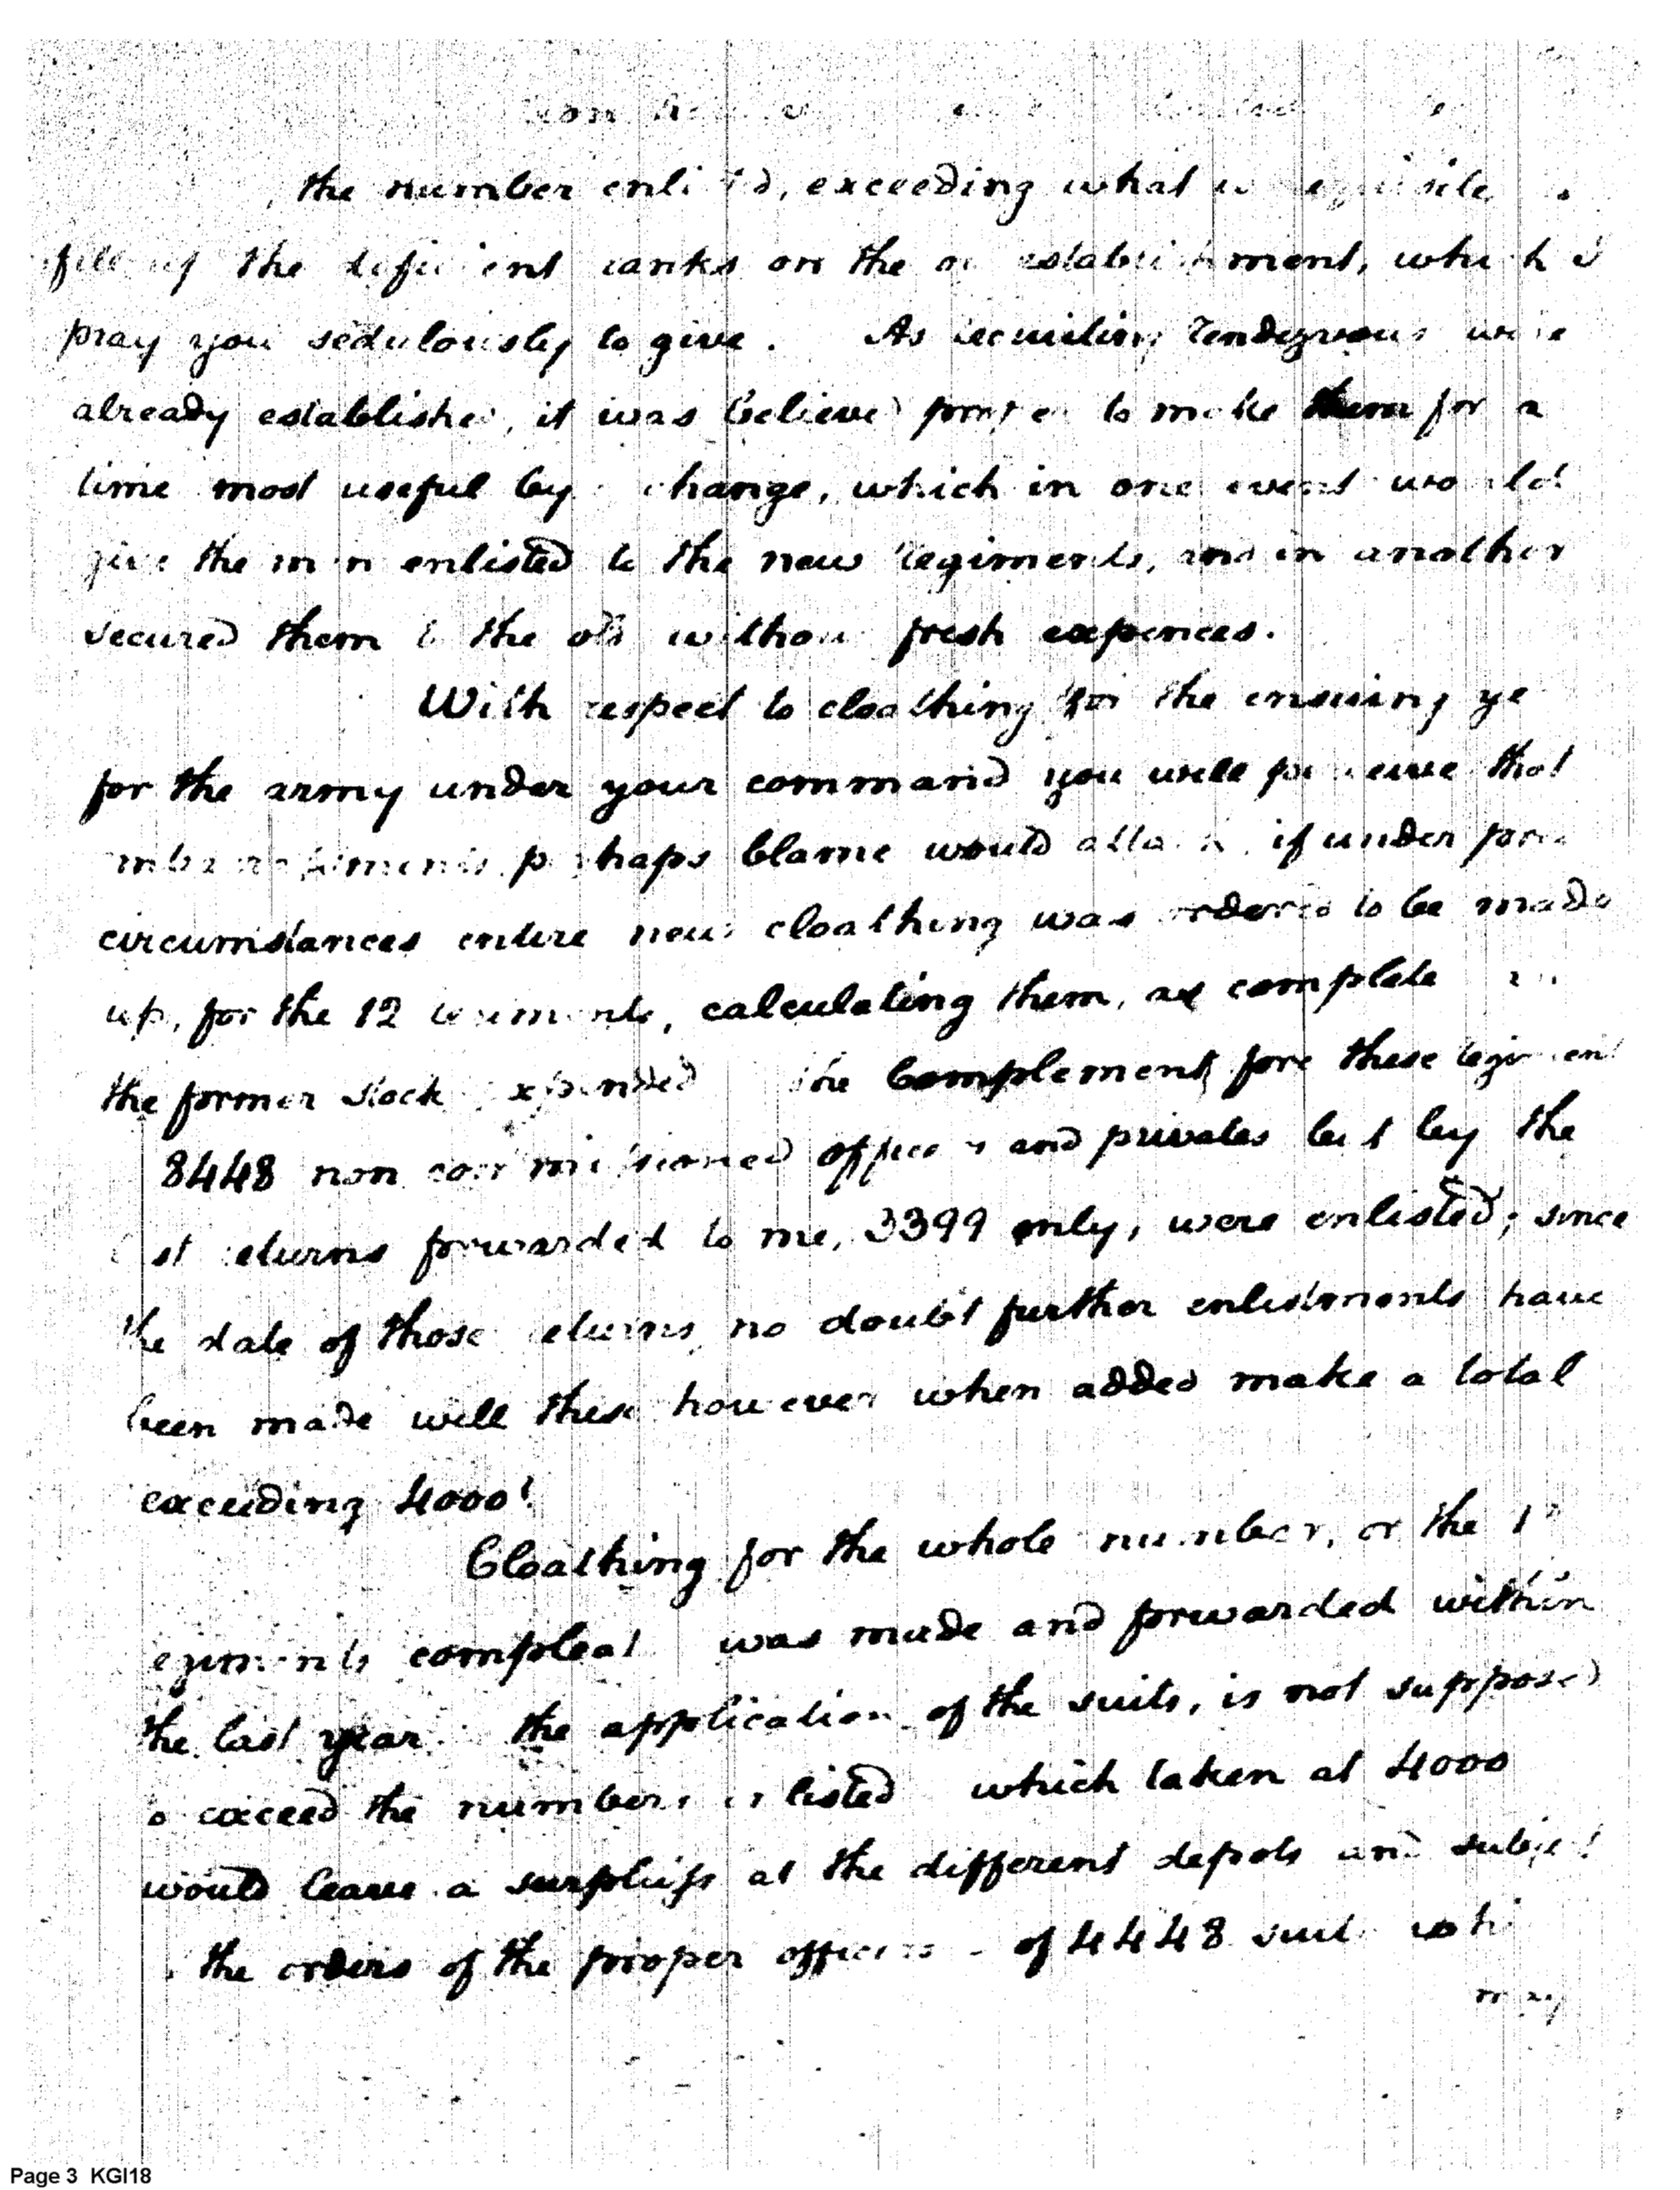 the number exceeding what
the ranks on the establishment,
pray you sedulously to give. As recruiting rendezvous were
already established, it was believed proper to make them for a
time most useful by change, which in one event would
give the men enlisted to the new regiments, and in another
secured them to the old without fresh expences.
With respect to cloathing for the ensuing
for the army under your command you will perceive that
perhaps blame would if under
circumstances entire new cloathing was ordered to be made
up, for the 12 regiments, calculating them, as complete
the former stock expended the Complement fore these regiment
8448 non commissioned officers and privates but by the
last returns forwarded to me, 3399 only, were enlisted; since
the date of those returns no doubt further enlistments have
been made will these however when added make a total
exceeding 4000?
Cloathing for the whole number, or the 12
regiments compleat was made and forwarded within
the last year. the application of the suits, is not supposed
to exceed the numbers enlisted which taken at 4000
would leave a surpluss at the different depots and subject
the orders of the proper officers - of 4448 suits
may
Page 3 KGI18